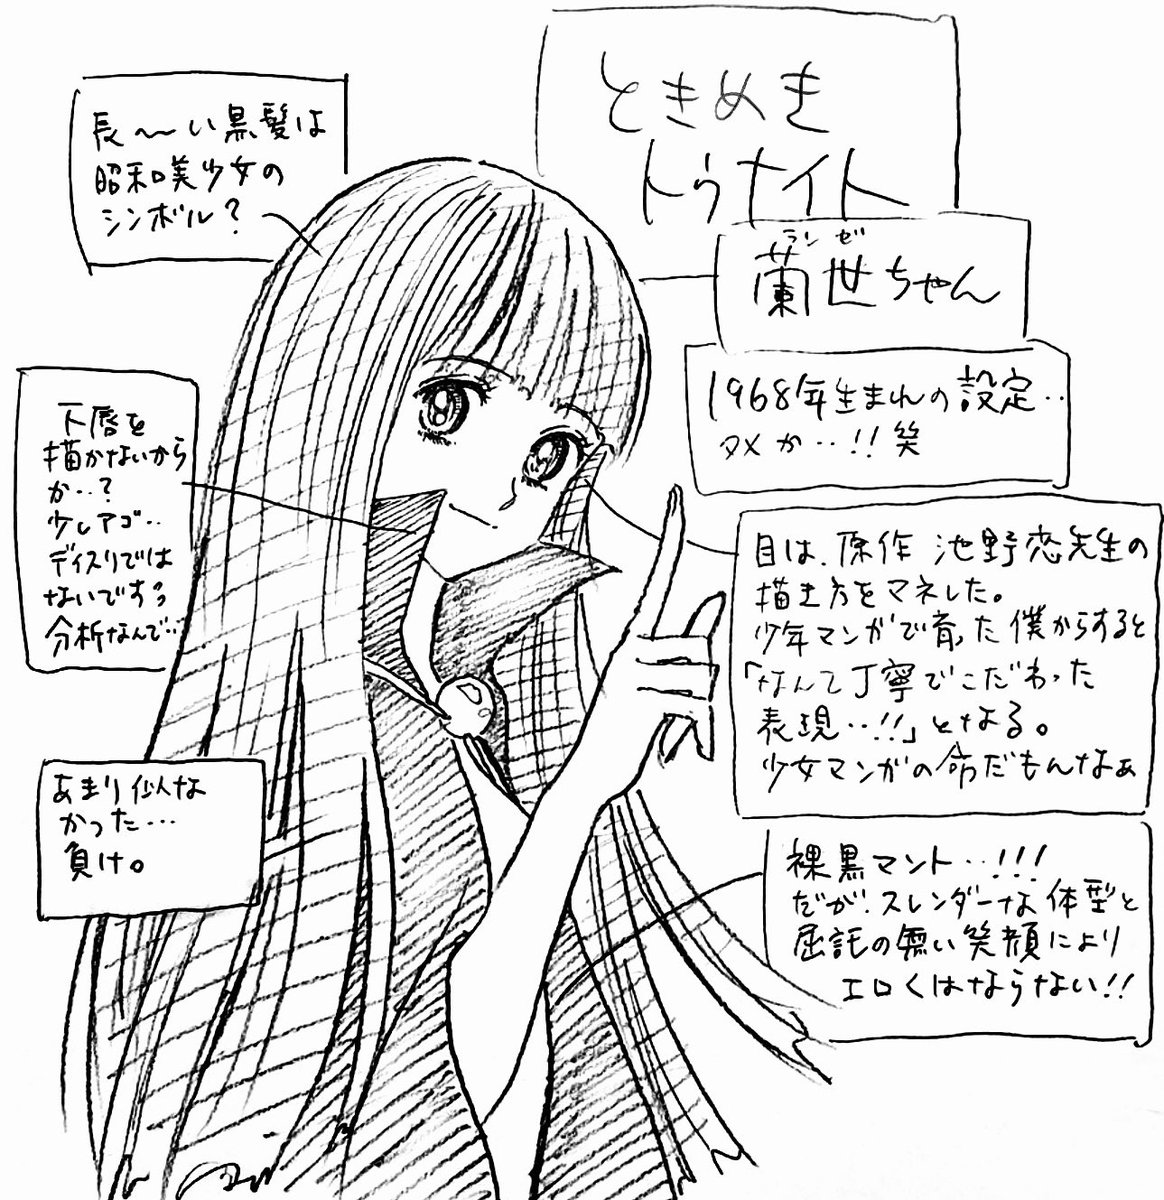 ときめき
トゥナイト
ランゼ
蘭世ちゃん
1968年生まれの設定‥
タメか‥!!笑
長〜い黒髪は
昭和美少女の
シンボル?
下唇を
描かないから
か‥?
少しアゴ‥
ディスリでは
ないですよ
分析なんで‥
目は、原作 池野恋先生の
描き方をマネした。
少年マンガで育った僕からすると
「なんて丁寧でこだわった
表現‥!!」となる。
少女マンガの命だもんなぁ
あまり似な
かった…
負け。
裸黒マント‥!!!
だが、スレンダーな体型と
屈託の無い笑顔により
エロくはならない!!